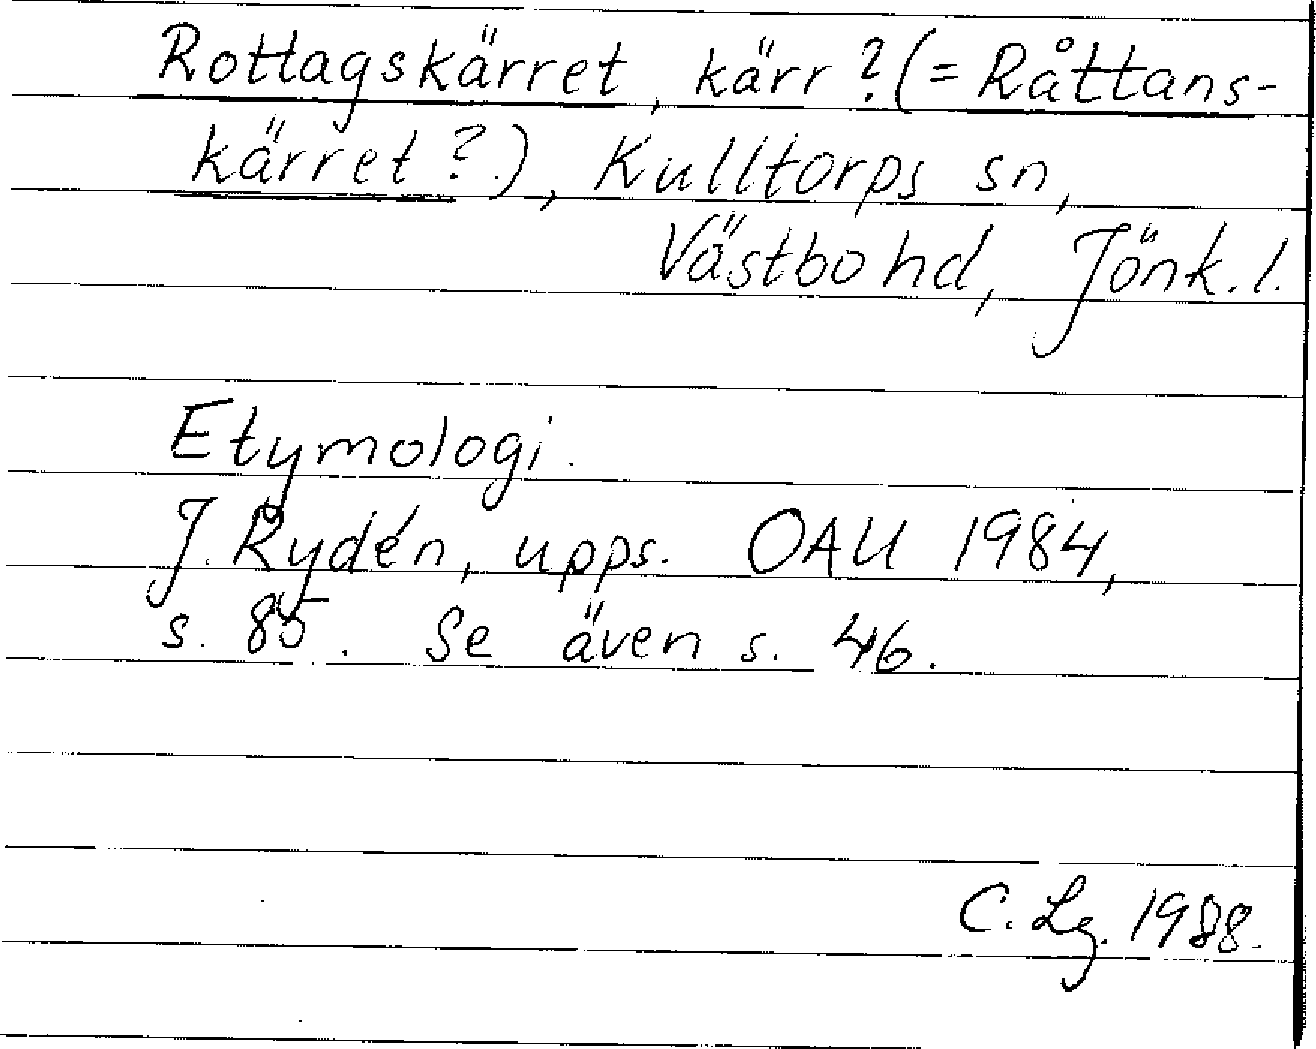 Rottagskärret, kärr? (= Råttans-
kärret?), Kulltorps sn,
Västbo hd, Jönk. l.
Etymologi.
J. Rydén, upps. OAU 1984,
s. 85. Se även s. 46.
C. Lg. 1988.